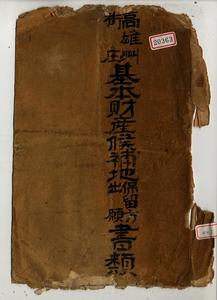 高雄州
街庄
基本財産候補地保留方
出願
書類
20363